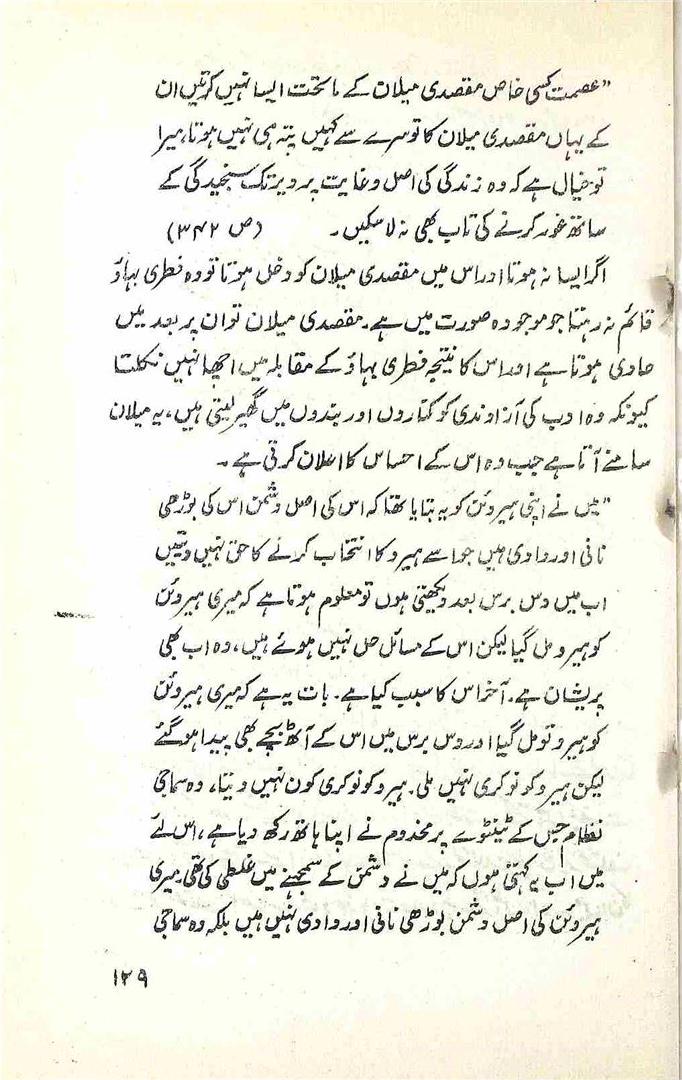 ”عصمت کسی خاص مقصدی میلان کے ماتحت ایسا نہیں کرتیں ان
کے یہاں مقصدی میلان کا تو سرے سے کہیں پتہ ہی نہیں ہوتا، میرا
تو خیال ہے کہ وہ زندگی کی اصل و غایت پر دیر تک سنجیدگی کے
ساتھ غور کرنے کی تاب بھی نہ لا سکیں۔ (ص ۳۴۲)
اگر ایسا نہ ہوتا اور اس میں مقصدی میلان کو دخل ہوتا تو وہ فطری بہاؤ
قائم نہ رہتا جو موجودہ صورت میں ہے۔ مقصدی میلان تو ان پر بعد میں
حاوی ہوتا ہے اور اس کا نتیجہ فطری بہاؤ کے مقابلہ میں اچھا نہیں نکلتا
کیونکہ وہ ادب کی آزاوندی کو کناروں اور بندوں میں گھیر لیتی ہیں، یہ میلان
سامنے آتا ہے جب وہ اس کے احساس کا اعلان کرتی ہے۔
”میں نے اپنی ہیروئن کو یہ بتایا تھا کہ اس کی اصل دشمن اس کی بوڑھی
نانی اور دادی ہیں جو اسے ہیرو کا انتخاب کرنے کا حق نہیں دیتیں
اب میں دس برس بعد دیکھتی ہوں تو معلوم ہوتا ہے کہ میری ہیروئن
کو ہیرو مل گیا لیکن اس کے مسائل حل نہیں ہوئے ہیں، وہ اب بھی
پریشان ہے۔ آخر اس کا سبب کیا ہے۔ بات یہ ہے کہ میری ہیروئن
کو ہیرو تو مل گیا اور دس برس میں اس کے آٹھ بچے بھی پیدا ہو گئے
لیکن ہیرو کو نوکری نہیں ملی۔ ہیرو کو نوکری کون نہیں دیتا، وہ سماجی
نظام جس کے ٹینٹوے پر مخدوم نے اپنا ہاتھ رکھ دیا ہے، اس لئے
میں اب یہ کہتی ہوں کہ میں نے دشمن کے سمجھنے میں غلطی کی تھی۔ میری
ہیروئن کی اصل دشمن بوڑھی نانی اور دادی نہیں ہیں بلکہ وہ سماجی
۱۲۹